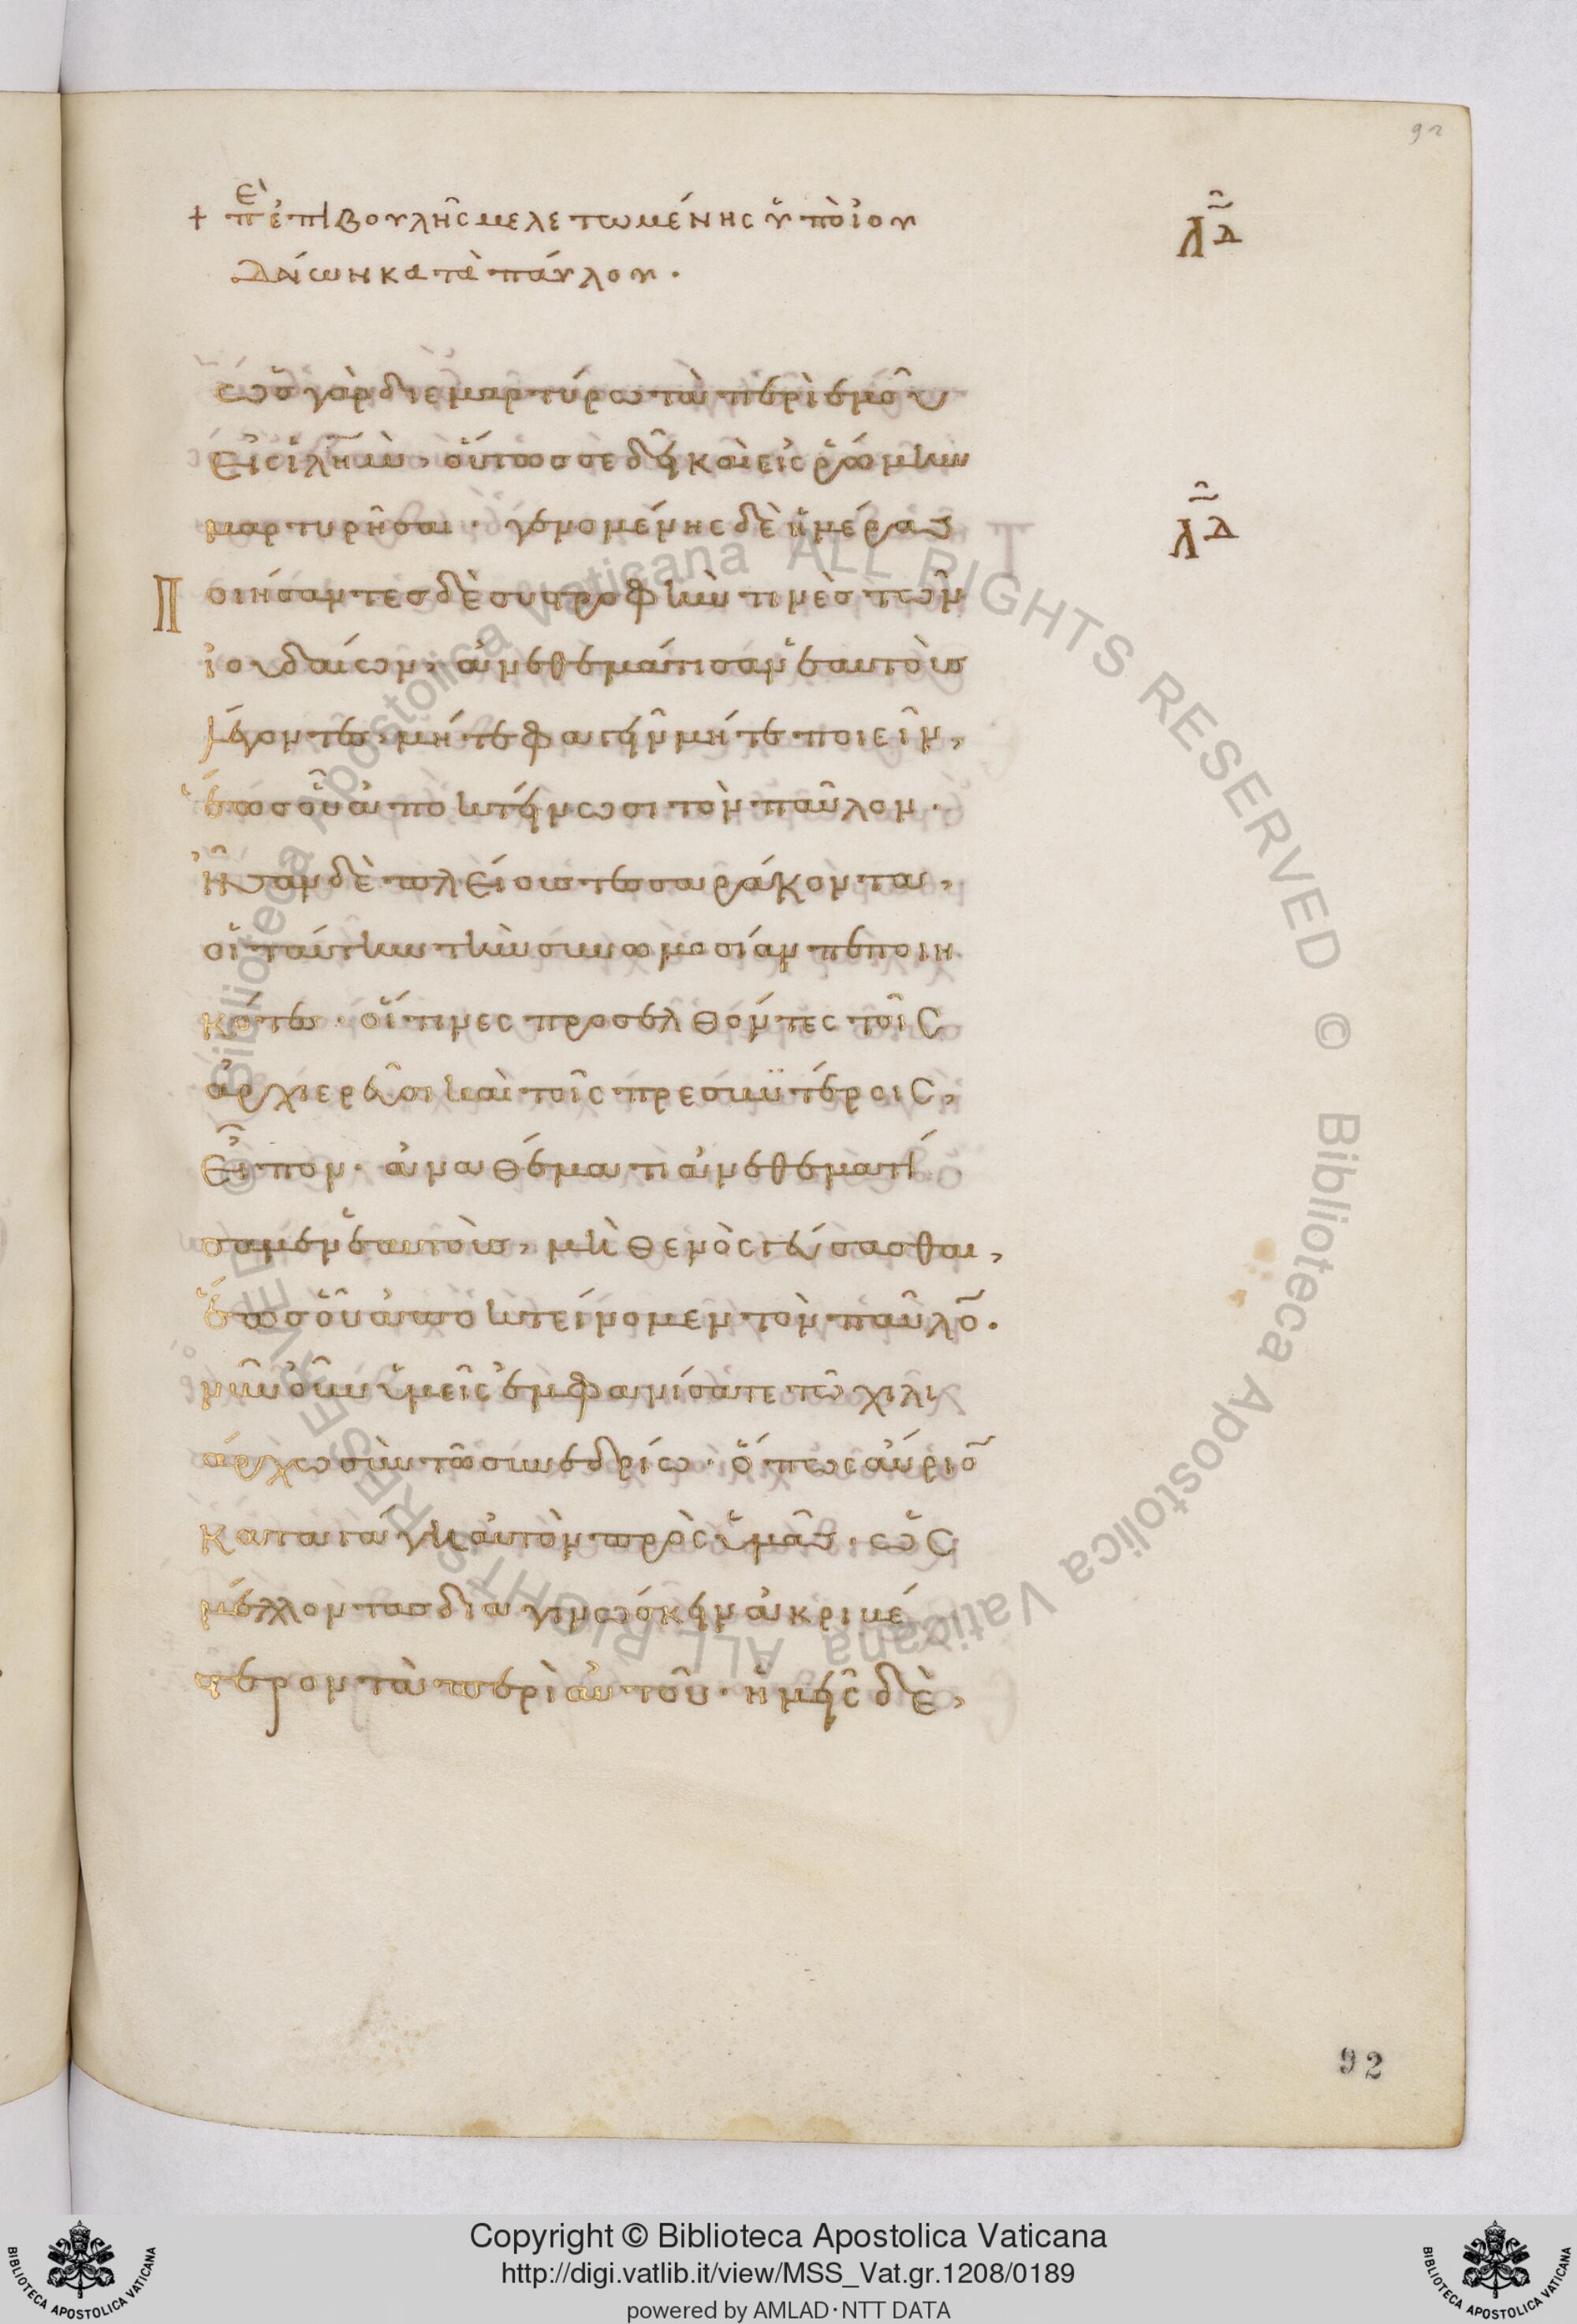 92
+ πε ἐπιβουλῆς μελετωμένης ὑπὸ ἰου
δαίων κατὰ παύλου.
λδ
ὡς γὰρ διεμαρτύρω τὰ περὶ ἐμοῦ
εἰς ἱλῆμ, οὕτως σε δεῖ καὶ εἰς ῥώμην
μαρτυρῆσαι. γενομένης δὲ ἡμέρας
λδ
Ποιήσαντες δὲ συστροφὴν τινὲς τῶν
ἰουδαίων, ἀνεθεμάτισαν ἑαυτοὺς
λέγοντες, μήτε φαγεῖν μήτε ποιεῖν,
ἕως οὗ ἀποκτείνωσι τὸν παῦλον.
Ἦσαν δὲ πλείους τεσσαράκοντα,
οἱ ταύτην τὴν συνωμοσίαν πεποιη
κότες. οἵτινες προσελθόντες τοῖς
ἀρχιερεῦσι καὶ τοῖς πρεσβυτέροις,
εἶπον. ἀναθέματι ἀνεθεματί
σαμεν ἑαυτοὺς, μηθενὸς γεύσασθαι,
ἕως οὗ ἀποκτείνομεν τὸν παῦλο̅.
νῦν οὖν ὑμεῖς ἐμφανίσατε τῶ χιλι
άρχω σὺν τῶ συνεδρίω. ὅπως αὔριο̅
καταγάγη αὐτὸν πρὸς ὑμᾶς. ὡς
μέλλοντας διαγινώσκειν ἀκριβέ
στερον τὰ περὶ αὐτοῦ. ἡμεῖς δὲ,
92
© Biblioteca Apostolica Vaticana ALL RIGHTS RESERVED © Biblioteca Apostolica Vaticana ALL RIGHTS RESERVED
Copyright © Biblioteca Apostolica Vaticana
http://digi.vatlib.it/view/MSS_Vat.gr.1208/0189
powered by AMLAD·NTT DATA
BIBLIOTECA APOSTOLICA VATICANA
BIBLIOTECA APOSTOLICA VATICANA